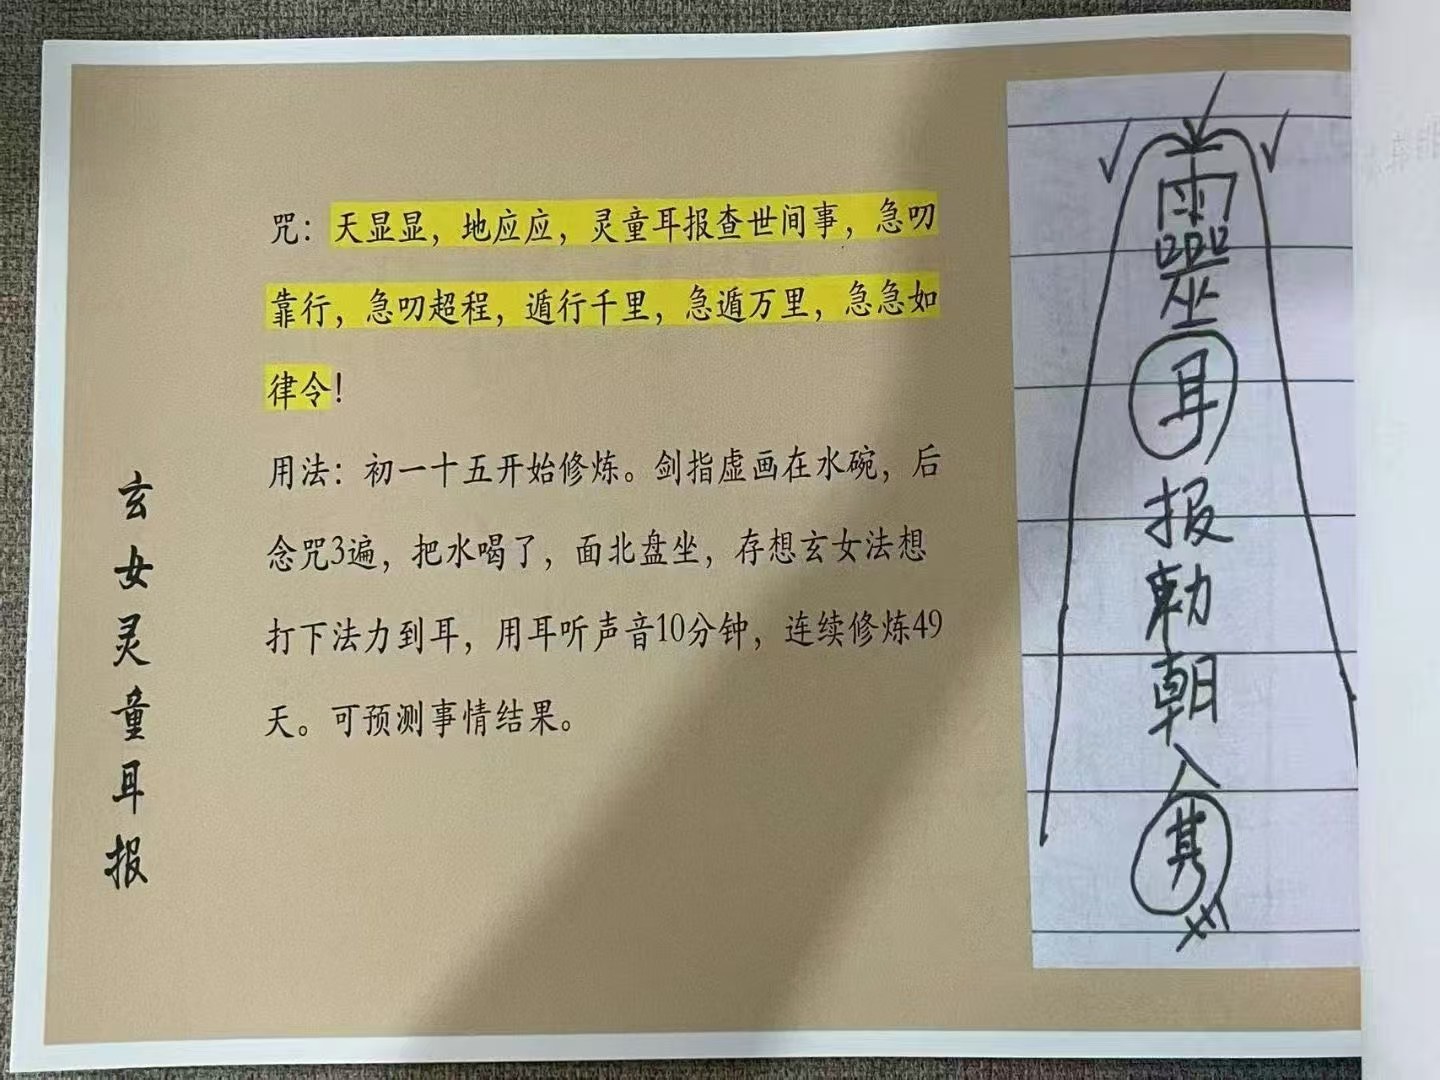 玄女灵童耳报
咒：天显显，地应应，灵童耳报查世间事，急叨
靠行，急叨超程，遁行千里，急遁万里，急急如
律令！
用法：初一十五开始修炼。剑指虚画在水碗，后
念咒3遍，把水喝了，面北盘坐，存想玄女法想
打下法力到耳，用耳听声音10分钟，连续修炼49
天。可预测事情结果。
耳
报
勅
朝